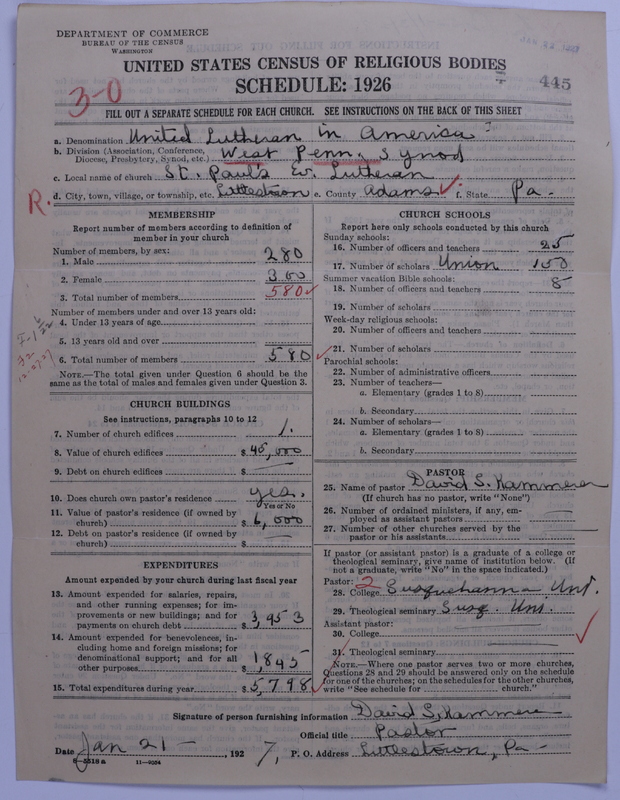 DEPARTMENT OF COMMERCE
BUREAU OF THE CENSUS
WASHINGTON
UNITED STATES CENSUS OF RELIGIOUS BODIES
SCHEDULE: 1926
445
3-0
FILL OUT A SEPARATE SCHEDULE FOR EACH CHURCH. SEE INSTRUCTIONS ON THE BACK OF THIS SHEET
a. Denomination United Lutheran in America
b. Division (Association, Conference, Diocese, Presbytery, Synod, etc.) West Penn. Synod
c. Local name of church St. Paul's Ev. Lutheran
R.
d. City, town, village, or township, etc. Littlestown e. County Adams f. State Pa.
MEMBERSHIP
Report number of members according to definition of
member in your church
Number of members, by sex:
1. Male 280
2. Female 300
3. Total number of members 580
Number of members under and over 13 years old:
4. Under 13 years of age
5. 13 years old and over
6. Total number of members 580
NOTE.—The total given under Question 6 should be the
same as the total of males and females given under Question 3.
CHURCH BUILDINGS
See instructions, paragraphs 10 to 12
7. Number of church edifices 1.
8. Value of church edifices $ 45,000
9. Debt on church edifices $ —
10. Does church own pastor's residence yes.
Yes or No
11. Value of pastor's residence (if owned by
church) $ 6,000
12. Debt on pastor's residence (if owned by
church) $ —
EXPENDITURES
Amount expended by your church during last fiscal year
13. Amount expended for salaries, repairs,
and other running expenses; for im-
provements or new buildings; and for
payments on church debt $ 3,953
14. Amount expended for benevolences, in-
cluding home and foreign missions; for
denominational support; and for all
other purposes $ 1,845
15. Total expenditures during year $ 5,798
CHURCH SCHOOLS
Report here only schools conducted by this church
Sunday schools:
16. Number of officers and teachers 25
17. Number of scholars Union 150
Summer vacation Bible schools:
18. Number of officers and teachers 8
19. Number of scholars
Week-day religious schools:
20. Number of officers and teachers
21. Number of scholars
Parochial schools:
22. Number of administrative officers
23. Number of teachers—
a. Elementary (grades 1 to 8)
b. Secondary
24. Number of scholars—
a. Elementary (grades 1 to 8)
b. Secondary
PASTOR
25. Name of pastor David S. Kammerer
(If church has no pastor, write "None")
26. Number of ordained ministers, if any, em-
ployed as assistant pastors —
27. Number of other churches served by the
pastor or his assistants —
If pastor (or assistant pastor) is a graduate of a college or
theological seminary, give name of institution below. (If
not a graduate, write "No" in the space indicated.)
Pastor: 2
28. College Susquehanna Uni.
29. Theological seminary Susq. Uni.
Assistant pastor:
30. College
31. Theological seminary
NOTE.—Where one pastor serves two or more churches,
Questions 28 and 29 should be answered only on the schedule
for one of the churches; on the schedules for the other churches,
write "See schedule for ............ church."
Signature of person furnishing information David S. Kammerer
Official title Pastor
Date Jan 21 — , 1927, P. O. Address Littlestown, Pa —
8—5518 a 11—9054